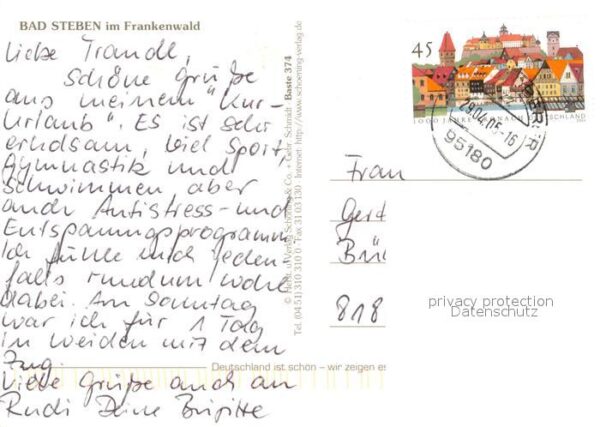 BAD STEBEN im Frankenwald
Liebe Traudl,
schöne Grüße
aus meinem "Kur-
Urlaub". Es ist sehr
erholsam, viel Sport,
Gymnastik und
Schwimmen aber
auch Antistress- und
Entspannungsprogramm
Ich fühle mich jeden-
falls rundum wohl
dabei. Am Sonntag
war ich für 1 Tag
in Weiden mit dem
Zug.
Liebe Grüße auch an
Rudi Deine Birgitte
© Hicht. u. Verlag Schöning & Co. + Gebr. Schmidt Baste 374
Tel. (04 51) 310 310 0 · Fax 31 03 130 · Internet: http://www.schoening-verlag.de
Deutschland ist schön – wir zeigen es
45
1000 JAHRE KRONACH DEUTSCHLAND
29.04.05-16
95180
Frau
Gert
Brü
818
privacy protection
Datenschutz